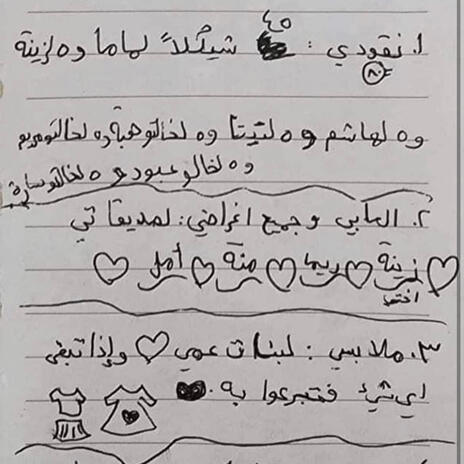 ١. نقودي : ٤٥ شيكلاً لماما و٥ لزينة
٨٠
و٥ لهاشم و٥ لتيتا و٥ لخالتو هبة و٥ لخالتو مريم
و٥ لخالو عبود و٥ لخالتو سارة
٢. العابي وجمع اغراضي: لصديقاتي
زينة ريما منة أمل
اختي
٣. ملابسي : لبنات عمي وإذا تبقى
اي شيئ فتبرعوا به.